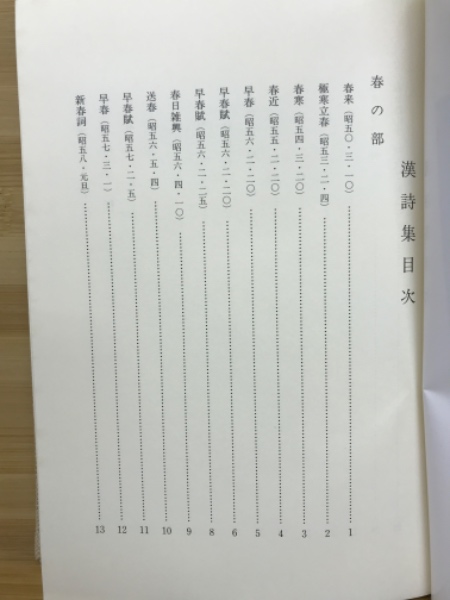 漢詩集目次
春の部
春来（昭五〇・三・一〇）……1
極寒立春（昭五三・二・四）……2
春寒（昭五四・三・二〇）……3
春近（昭五五・二・二〇）……4
早春（昭五六・二・二〇）……5
早春賦（昭五六・二・二〇）……6
早春賦（昭五六・二・二五）……8
春日雑興（昭五六・四・一〇）……9
送春（昭五六・五・四）……10
早春賦（昭五七・二・五）……11
早春（昭五七・三・一）……12
新春詞（昭五八・元旦）……13